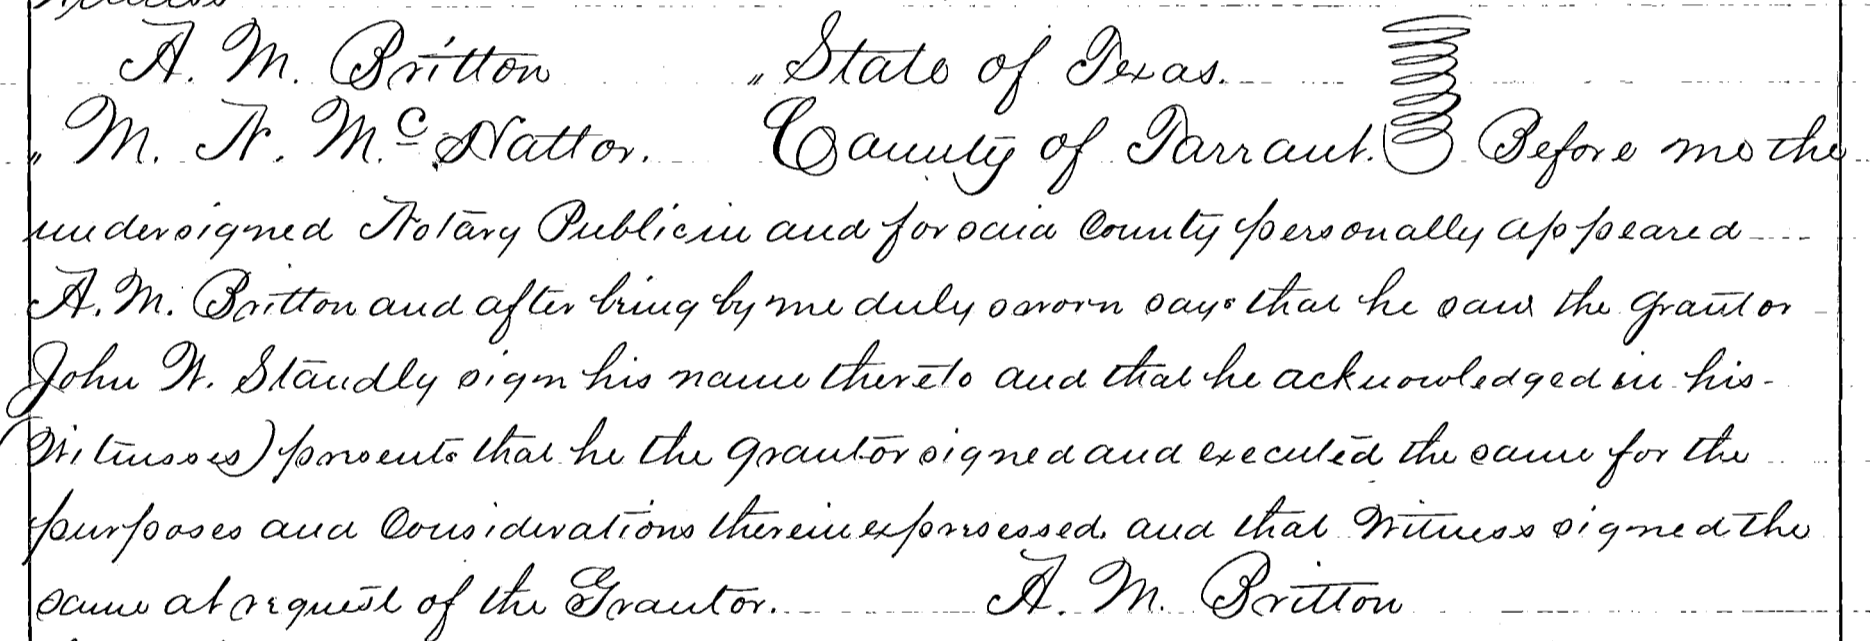 A. M. Britton " State of Texas.
" M. N. McNattor. County of Tarrant. Before me the
undersigned Notary Public in and for said County personally appeared
A. M. Britton and after bring by me duly sworn says that he saw the grantor
John W. Standly sign his name thereto and that he acknowledged in his
(Witnesses) presents that he the grantor signed and executed the same for the
purposes and Considerations therein expressed. and that Witness signed the
same at request of the Grantor. A. M. Britton